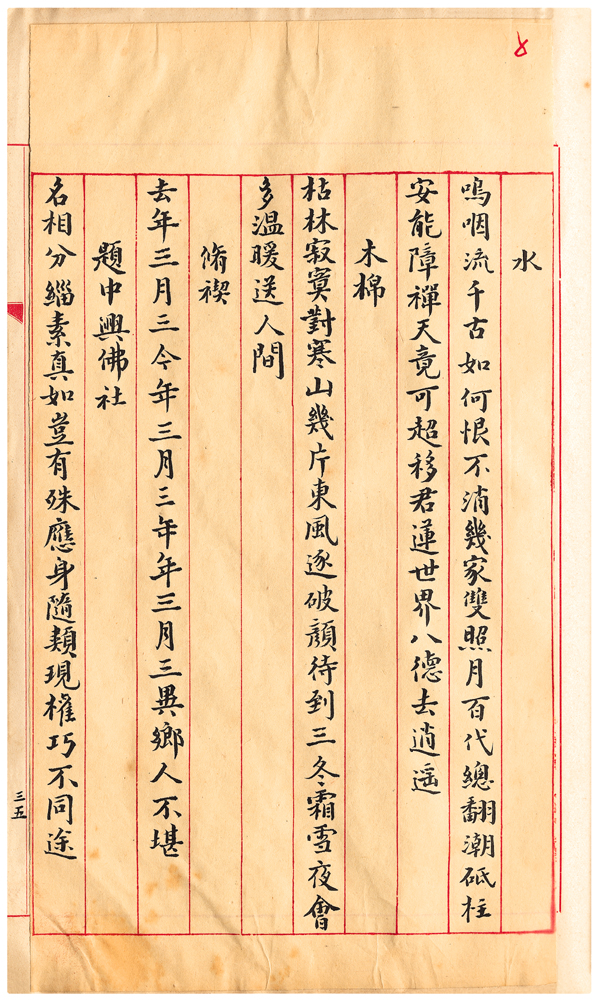 水
嗚咽流千古如何恨不消幾家雙照月百代總翻潮砥柱
安能障禪天竟可超移君蓮世界八德去逍遥
木棉
枯林寂寞對寒山幾片東風逐破顏待到三冬霜雪夜會
多温暖送人間
脩禊
去年三月三今年三月三年年三月三異鄉人不堪
題中興佛社
名相分緇素真如豈有殊應身隨類現權巧不同途
三五